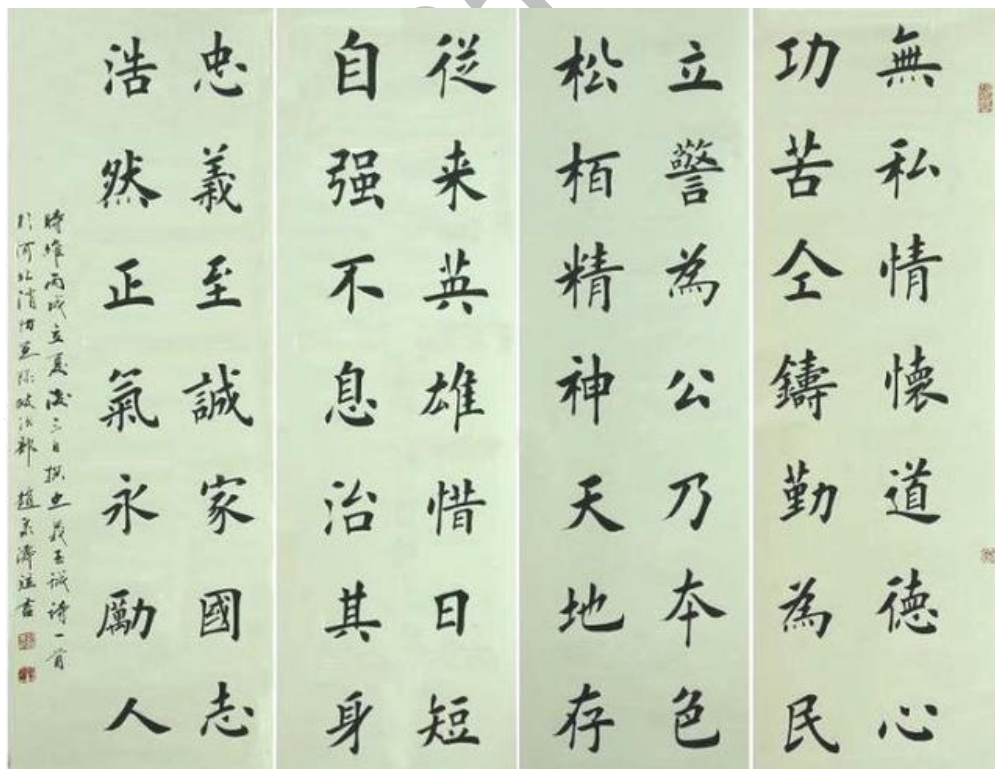 無私情懷道徳心
功苦仝鑄勤為民
立警為公乃本色
松栢精神天地存
従来英雄惜日短
自强不息治其身
忠義至誠家國志
浩然正氣永勵人
時維丙戌立夏後三日撰忠義至誠诗一首
於河北消防總隊政治部 趙